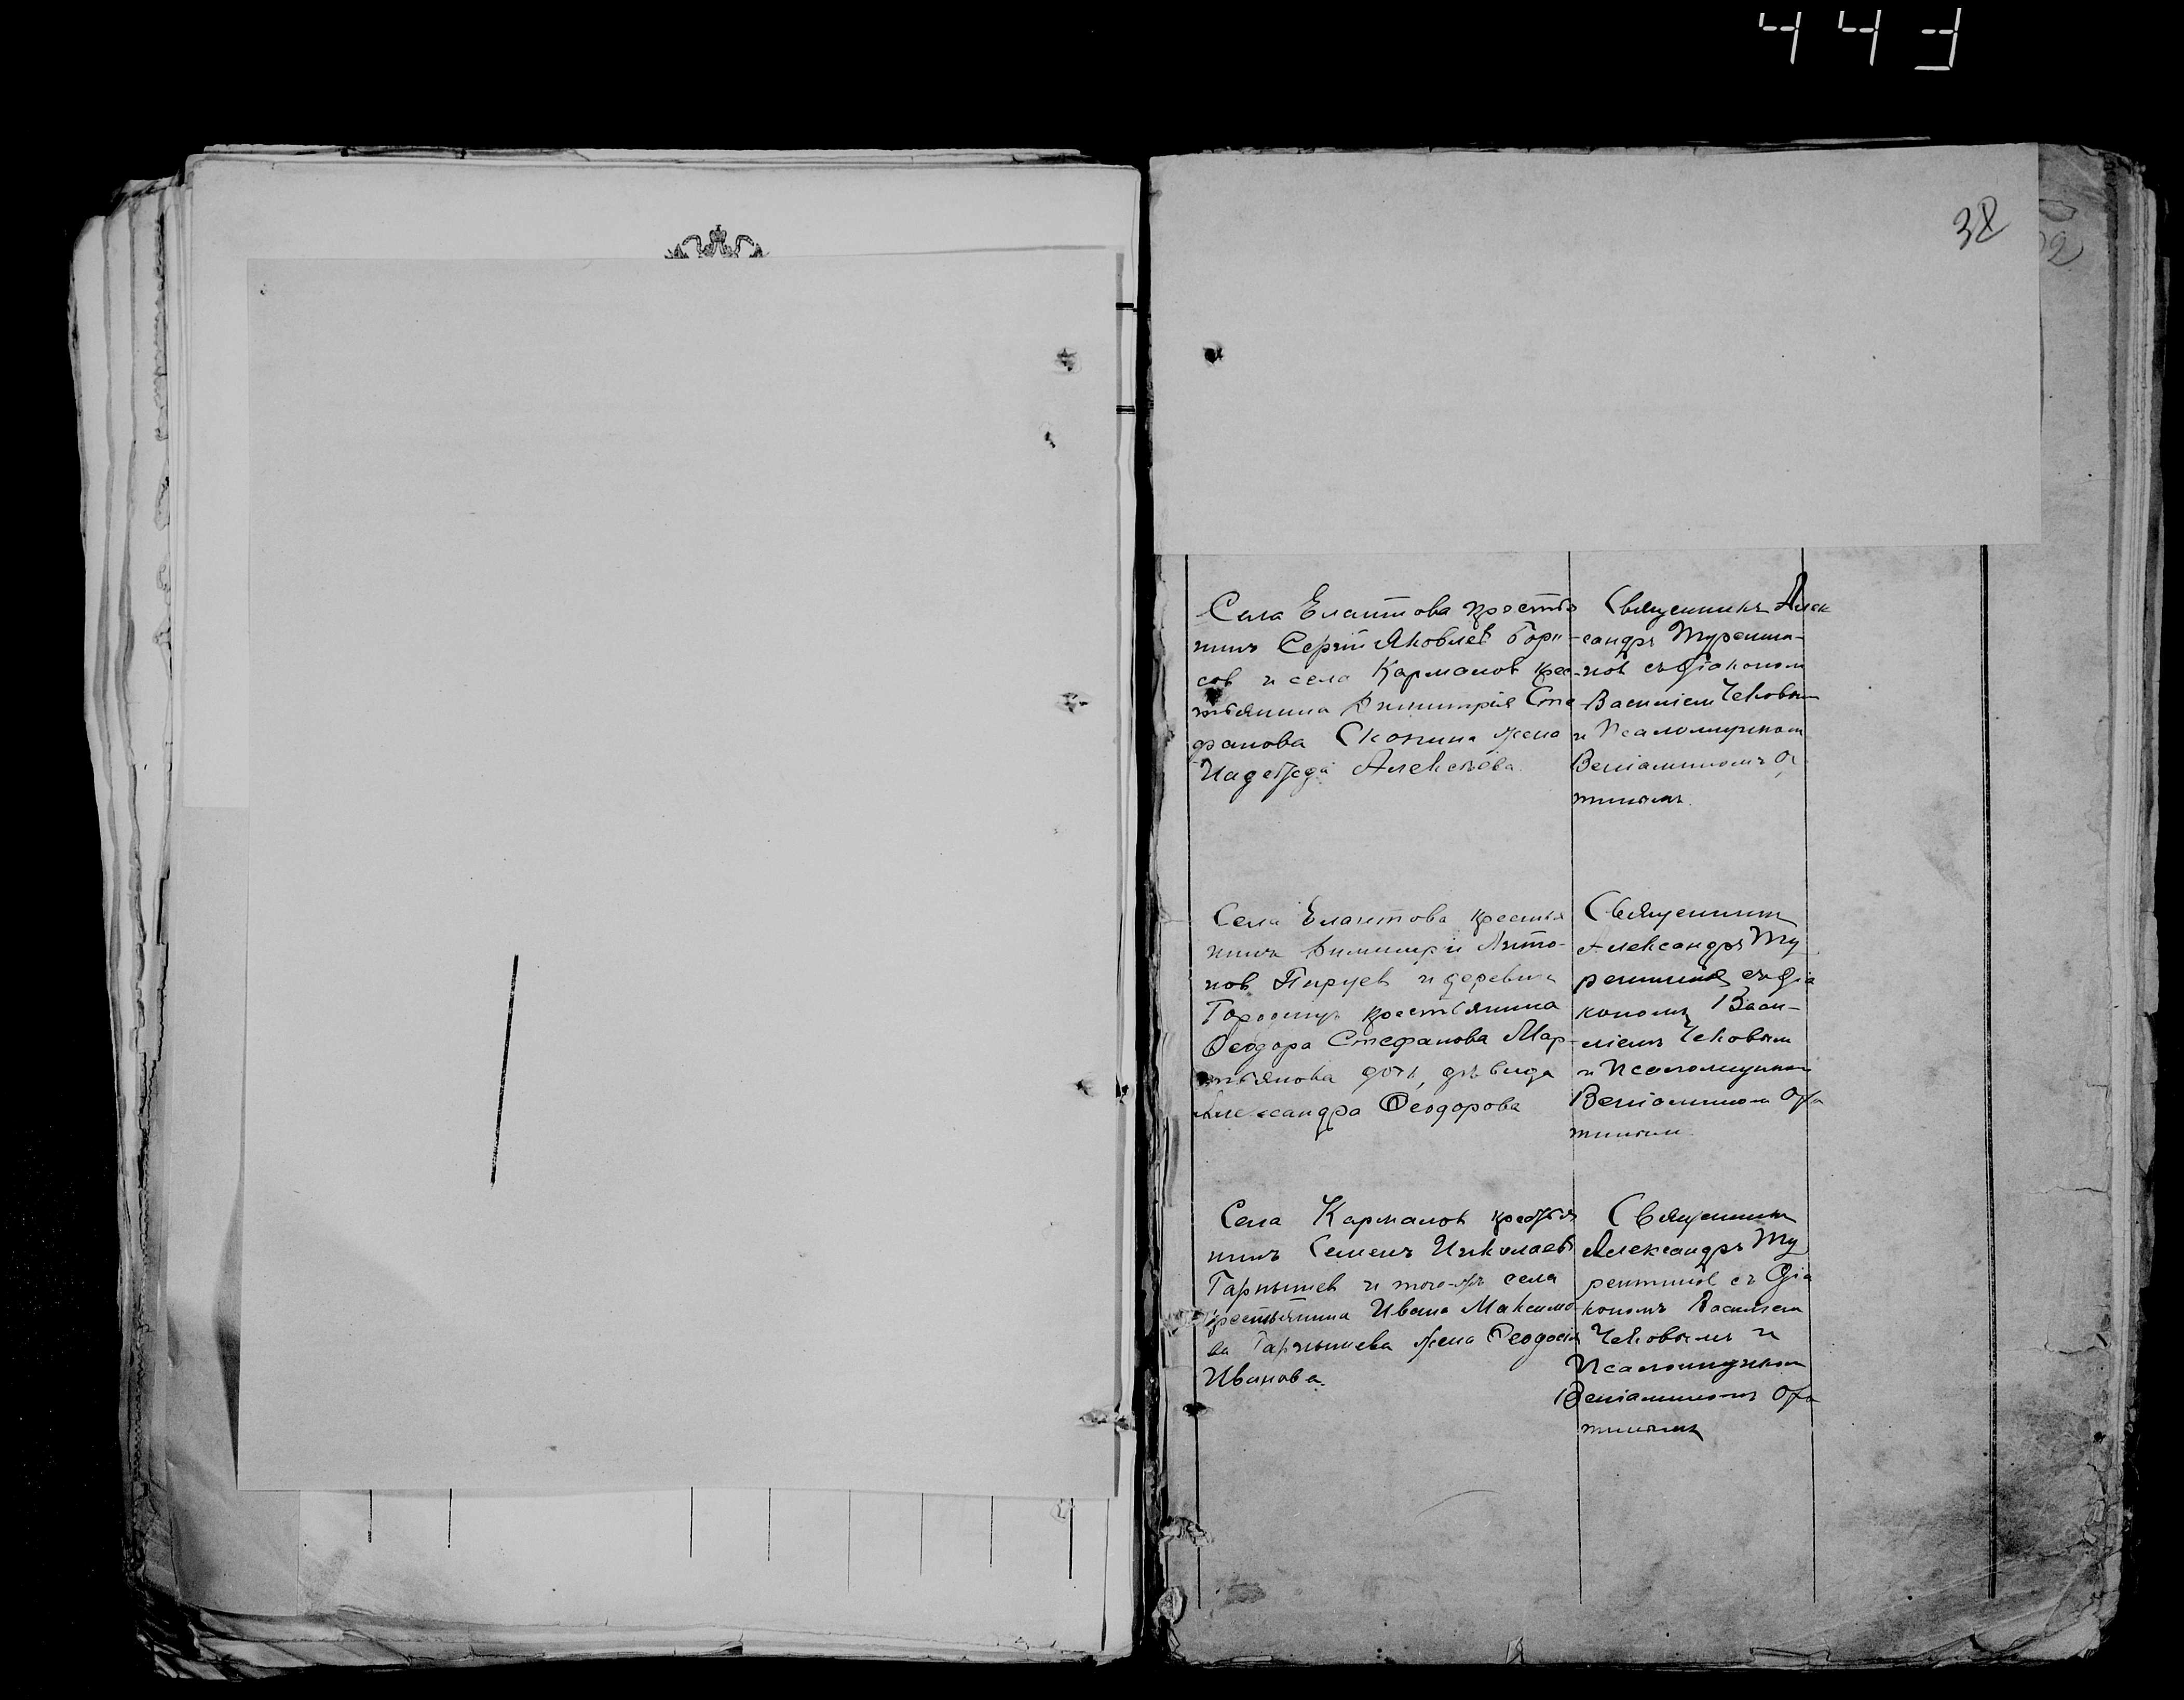 443
38
92
Села Елаитова крестья
нинъ Сергій Яковлев Бори-
сов и села Карманов крес-
тьянина Димитрія Сте
фанова Скопина жена
Надежда Алексѣева.
Священникъ Алек
сандръ Турешта-
нов съ діаконом
Василіем Чековым
и Псаломщиком
Веніаминомъ О
тиным.
Села Елаитова крестья
нинъ Димитрій Анто-
нов Пирцев и деревни
Городищъ крестьянина
Ѳеодора Стефанова Мар-
тьянова дочь, дѣвица
Александра Ѳеодорова
Священник
Александръ Ту
съ діа
кономъ Васи-
ліемъ Чековым
и Псаломщиком
Веніамином
тиным.
Села Карманов крестья
нинъ Семенъ Николаев
Гарнышев и того-жъ села
крестьянина Ивана Максимо
ва Гарнышева жена Ѳеодосія
Иванова.
Священник
Александръ Ту
съ Діа
кономъ Василіем
Чековымъ и
Псаломщиком
Веніаминомъ
тинымъ